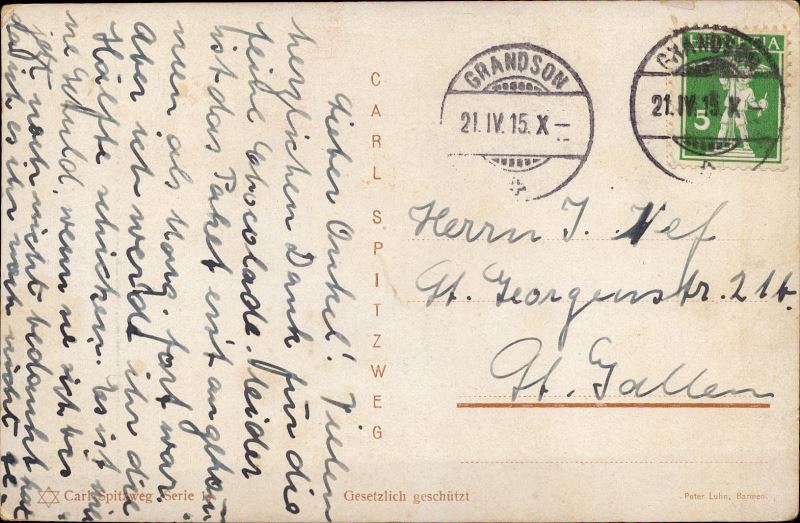 Lieber Onkel! Vielen
herzlichen Dank für die
feine Chocolade. Leider
ist das Paket erst angekom
men als Marg. fort war.
Aber ich werde ihr die
Hälfte schicken. Es ist
ne Geduld, wenn sie sich bis
jetzt noch nicht bedankt hat
da ich es ihr noch nicht
CARL SPITZWEG
GRANDSON
21.IV.15.X
HELVETIA
5
GRANDSON
21.IV.15.X
Herrn J. Nef
St. Georgenstr. 21b.
St. Gallen
Carl Spitzweg Serie
Gesetzlich geschützt
Peter Luhn, Barmen.